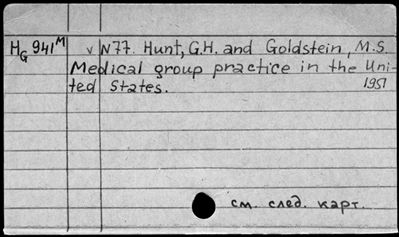 HG 941M v N77. Hunt, G.H. and Goldstein, M.S.
Medical group practice in the Uni-
ted States. 1951
см. след. карт.